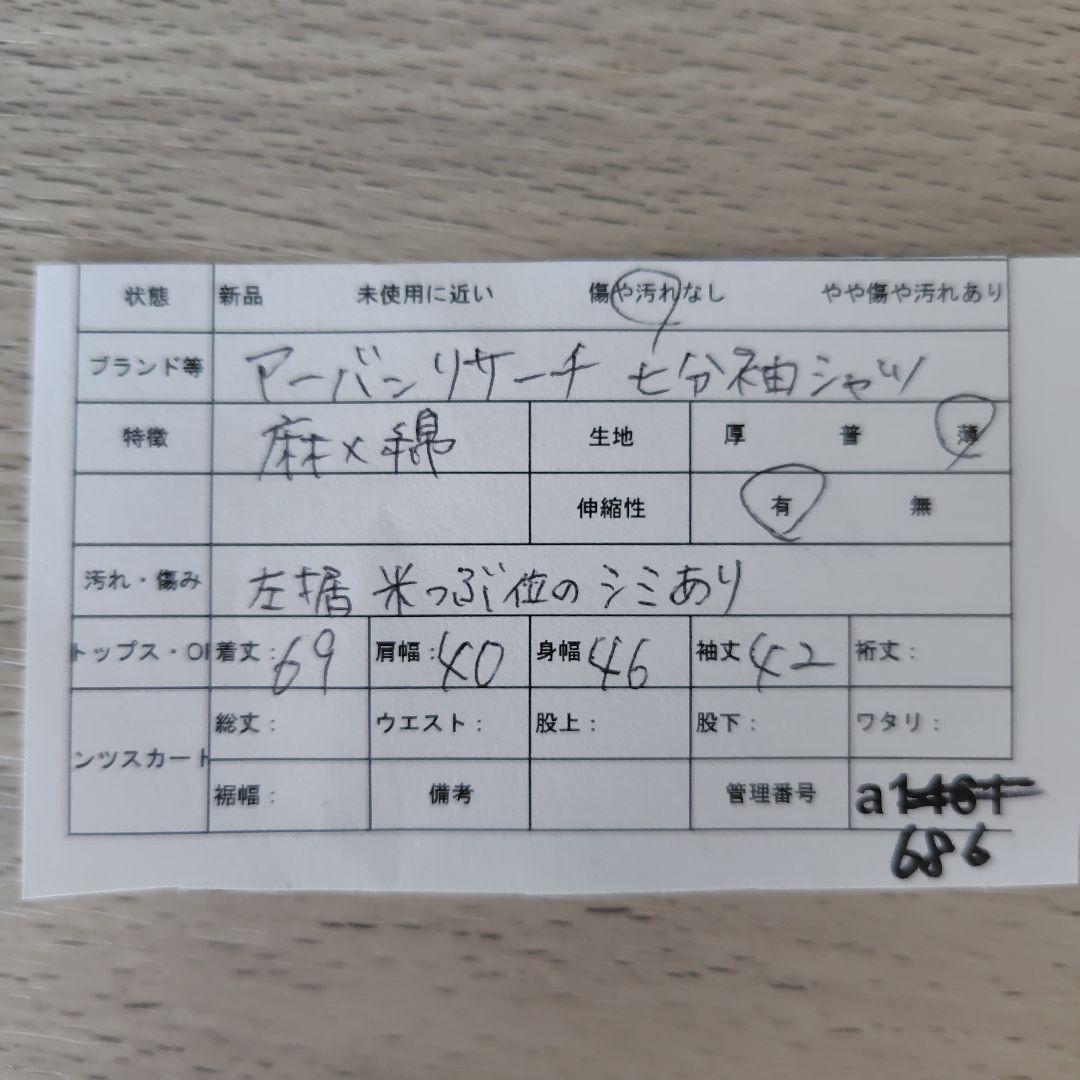 状態 新品 未使用に近い 傷や汚れなし やや傷や汚れあり
ブランド等 アーバンリサーチ 七分袖シャツ
特徴 麻×綿 生地 厚 普 薄
伸縮性 有 無
汚れ・傷み 左裾 米つぶ位のシミあり
トップス・OP 着丈:69 肩幅:40 身幅46 袖丈42 裄丈:
ンツスカート 総丈: ウエスト: 股上: 股下: ワタリ:
裾幅: 備考 管理番号 a
686